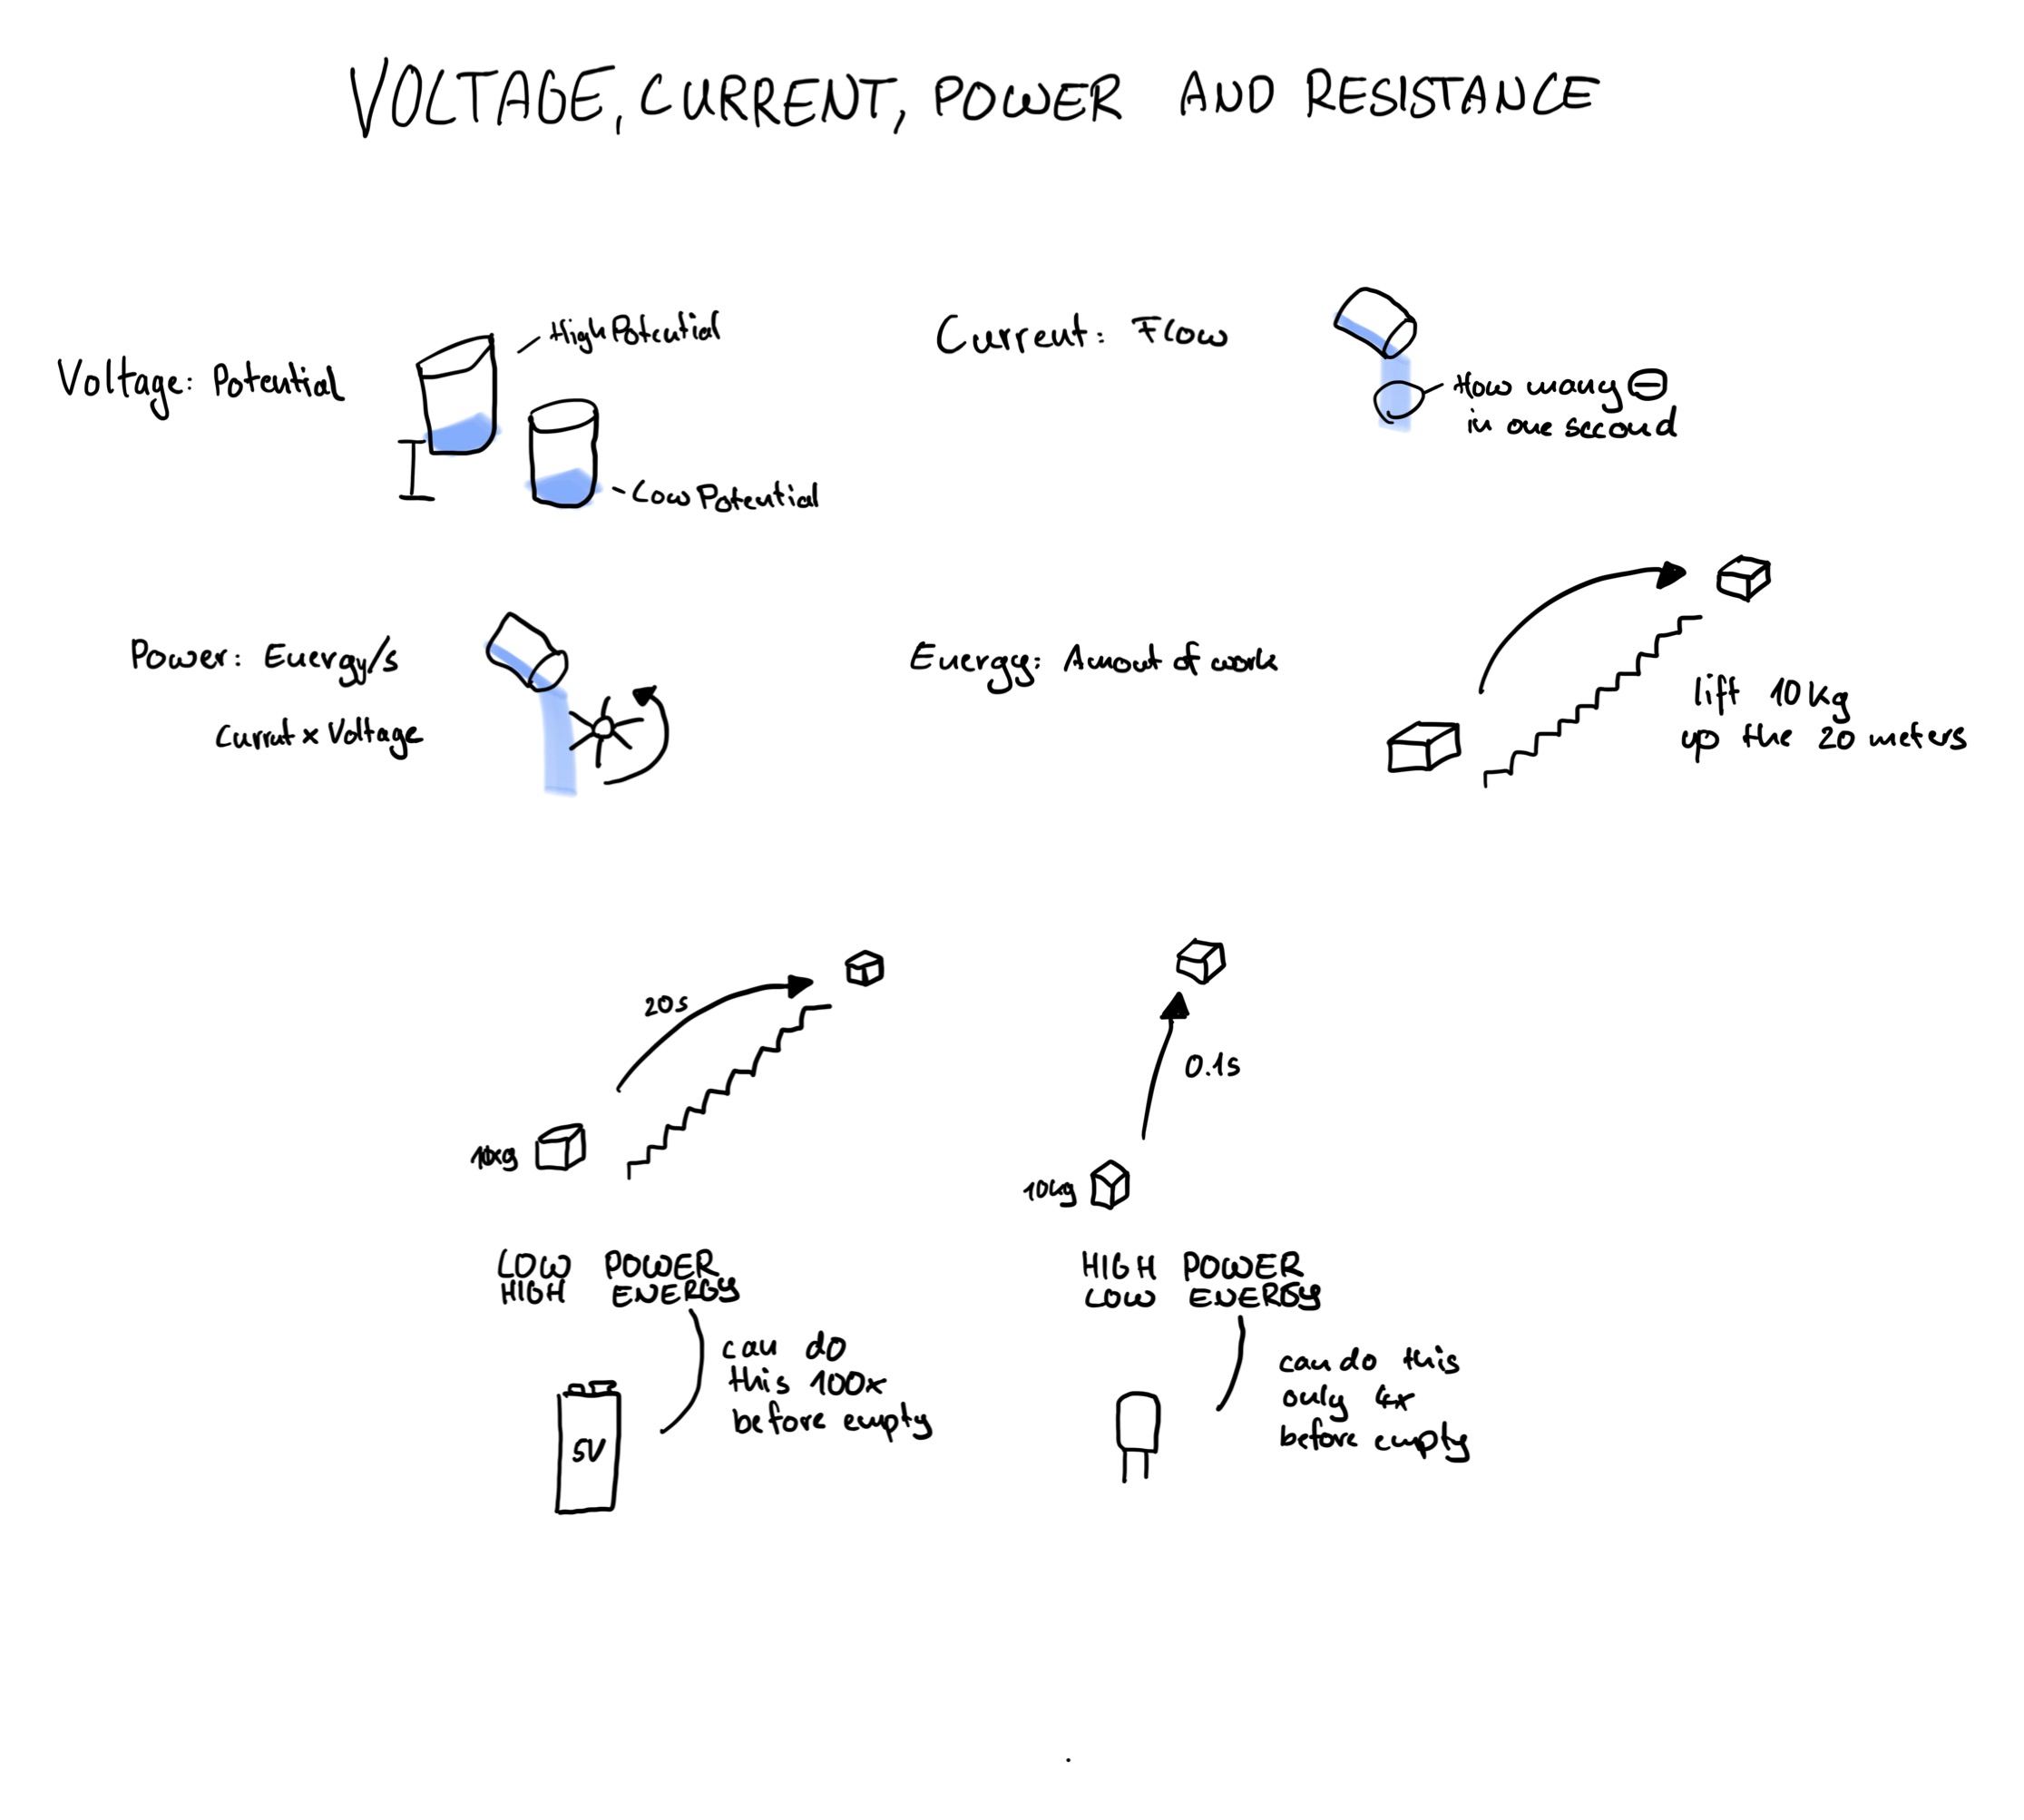 VOLTAGE, CURRENT, POWER AND RESISTANCE
Voltage: Potential
High Potential
Low Potential
Current: Flow
How many ⊖
in one second
Power: Energy/s
Currut x Voltage
Energy: Amout of work
lift 10kg
up the 20 meters
20s
10kg
LOW POWER
HIGH ENERGY
can do
this 100x
before empty
5V
0.1s
10kg
HIGH POWER
LOW ENERGY
can do this
only 4x
before empty